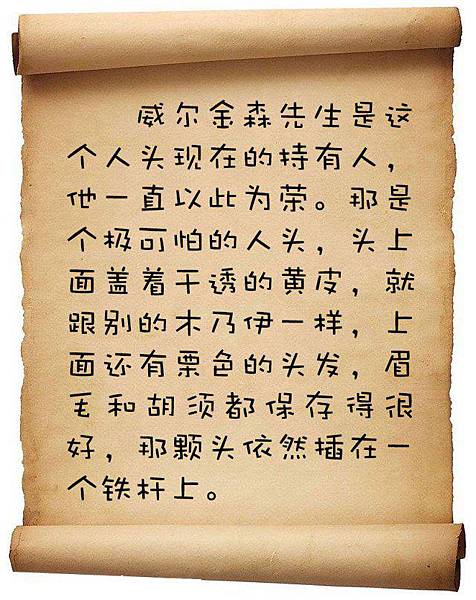 威尔金森先生是这
个人头现在的持有人，
他一直以此为荣。那是
个极可怕的人头，头上
面盖着干透的黄皮，就
跟别的木乃伊一样，上
面还有栗色的头发，眉
毛和胡须都保存得很
好，那颗头依然插在一
个铁杆上。